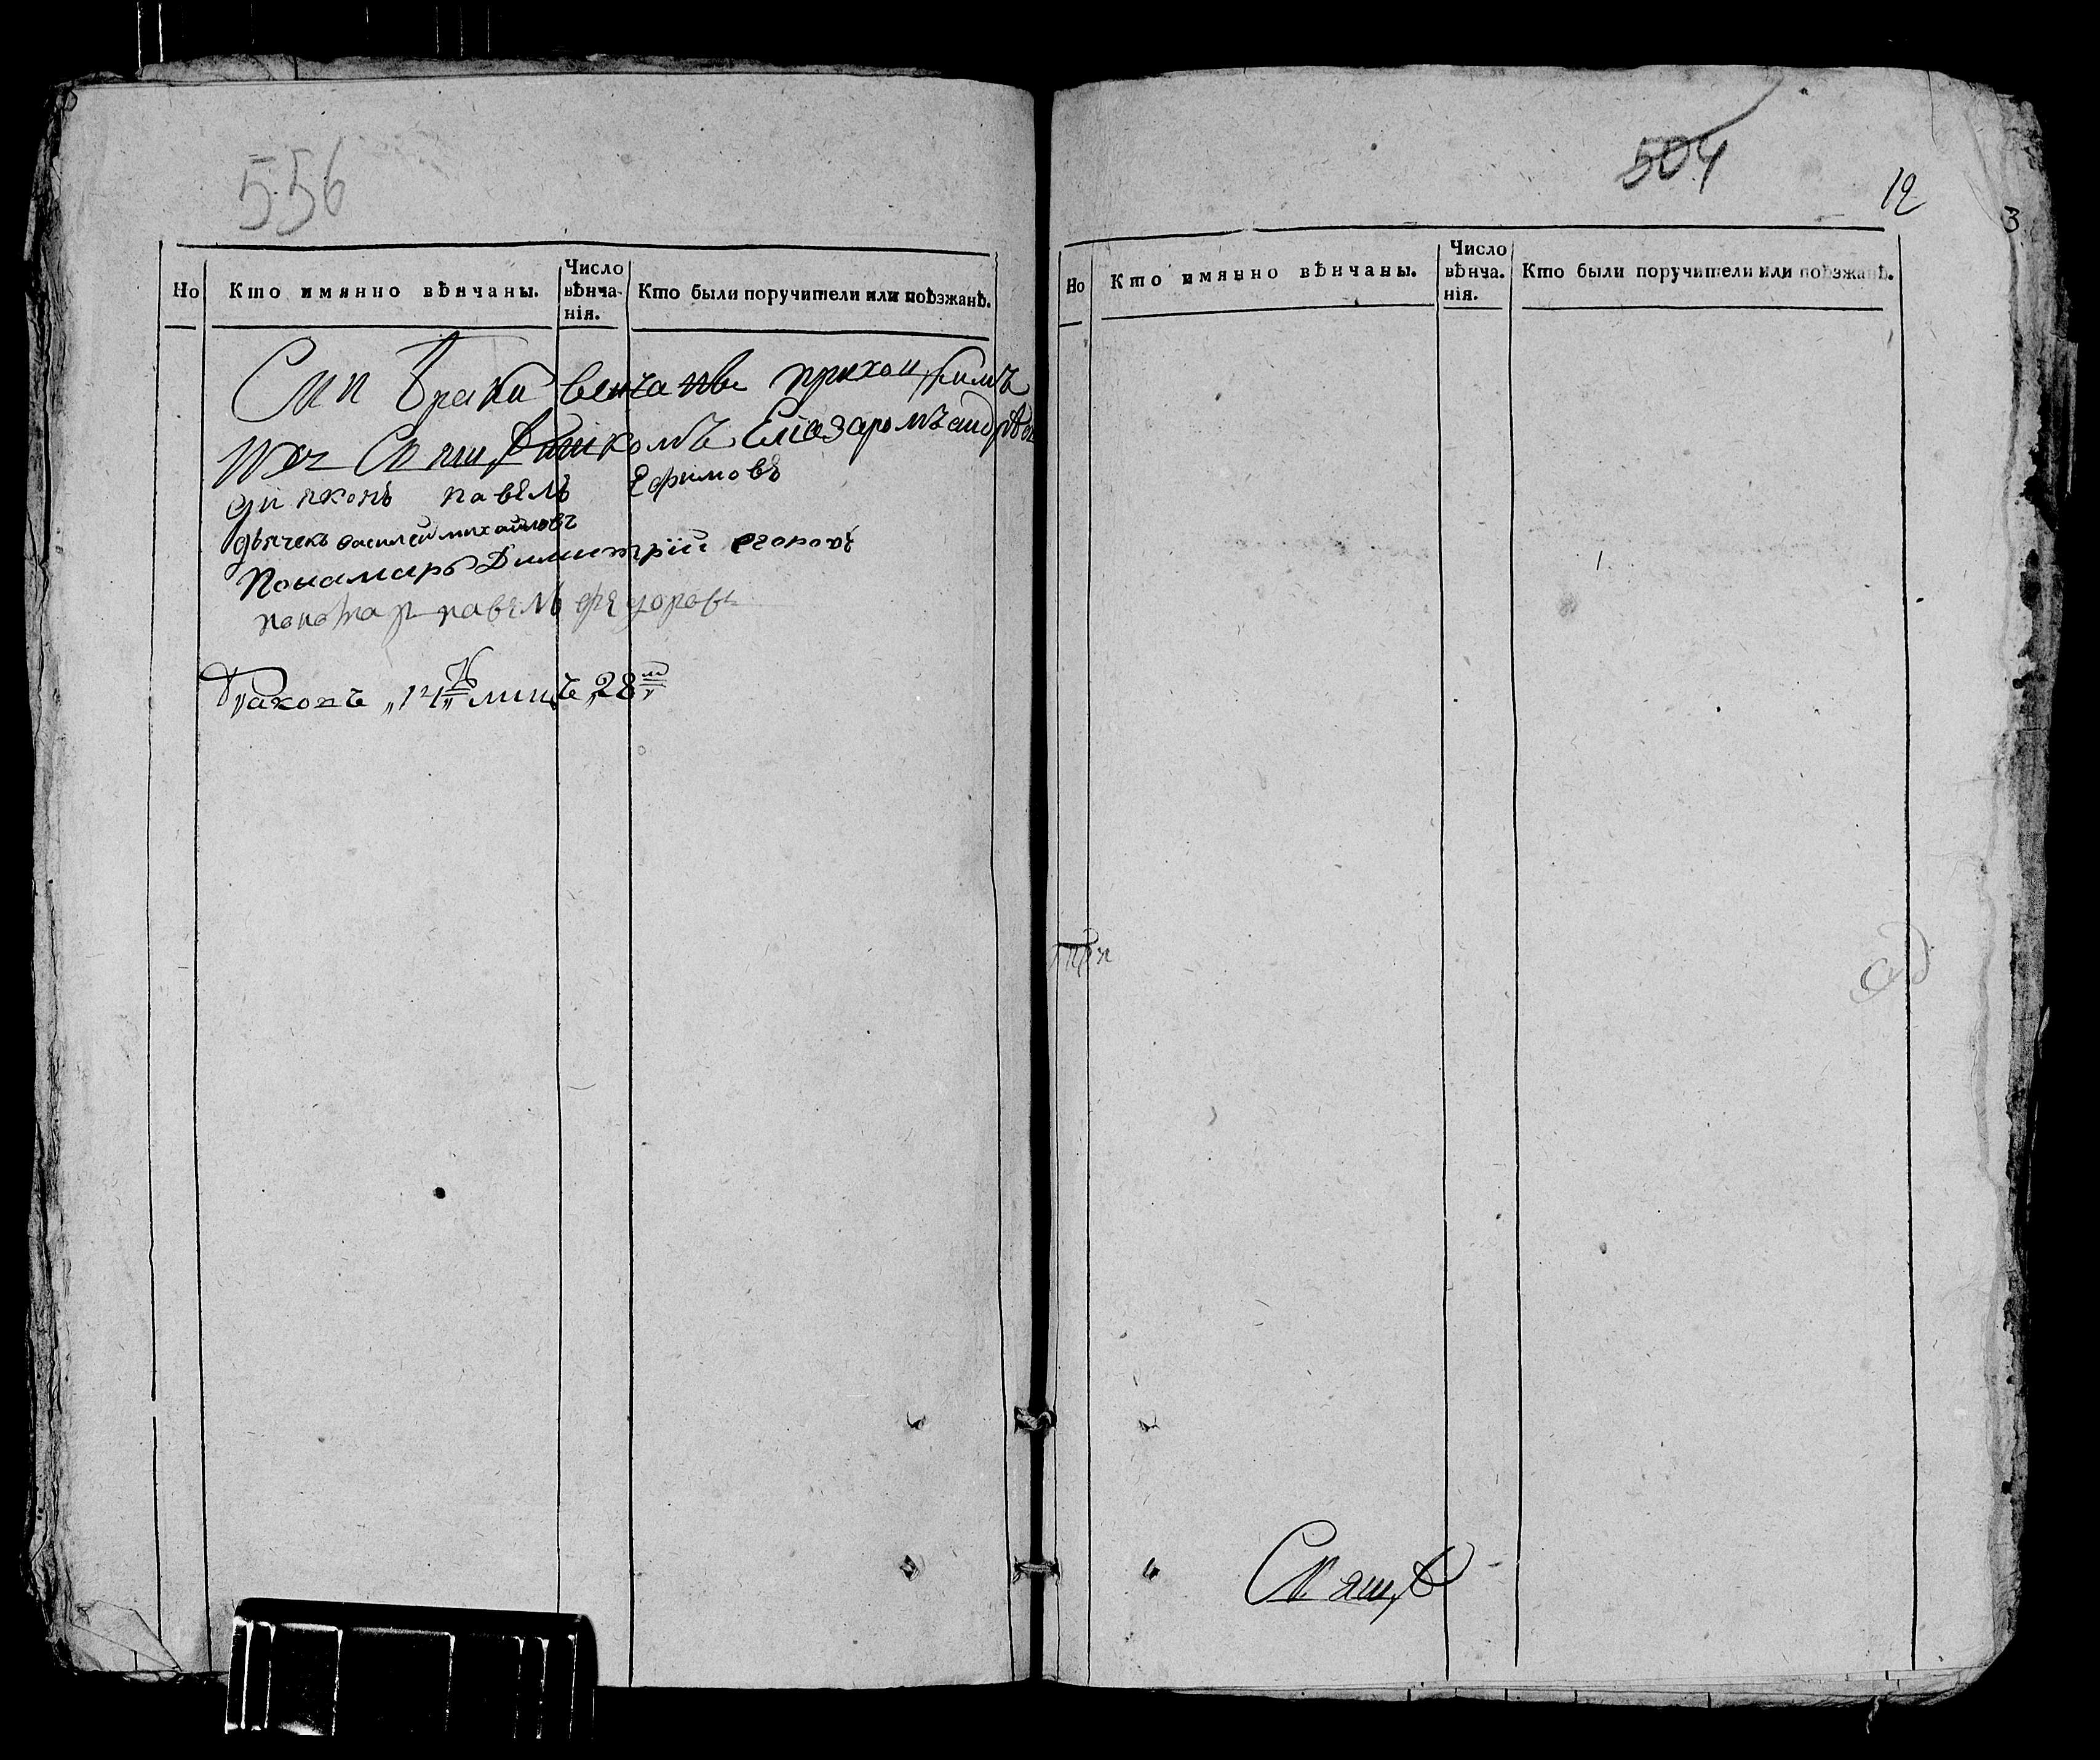 556
Но
Кто имянно вѣнчаны.
Число
вѣнча-
нія.
Кто были поручители или поѣзжанѣ.
Сии Браки венчаны приход
Свящ Елiазаромъ андрѣ
дияконъ павелъ Ефимовъ
дьячекъ василей михайловъ
Понамарь Димитрiй егоровъ
понамар павелъ федоровъ
Браковъ „14„ лицъ „28
504
12
3
Но
Кто имянно вѣнчаны.
Число
вѣнча.
нія.
Кто были поручители или поѣзжанѣ.
Свящ